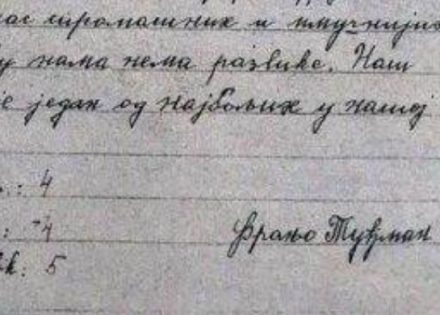 нас сиромашних и имучнијих
у нама нема разлике. Наш
је један од најбољих у нашој
.: 4
: -4 Фрањо Туђман
: 5